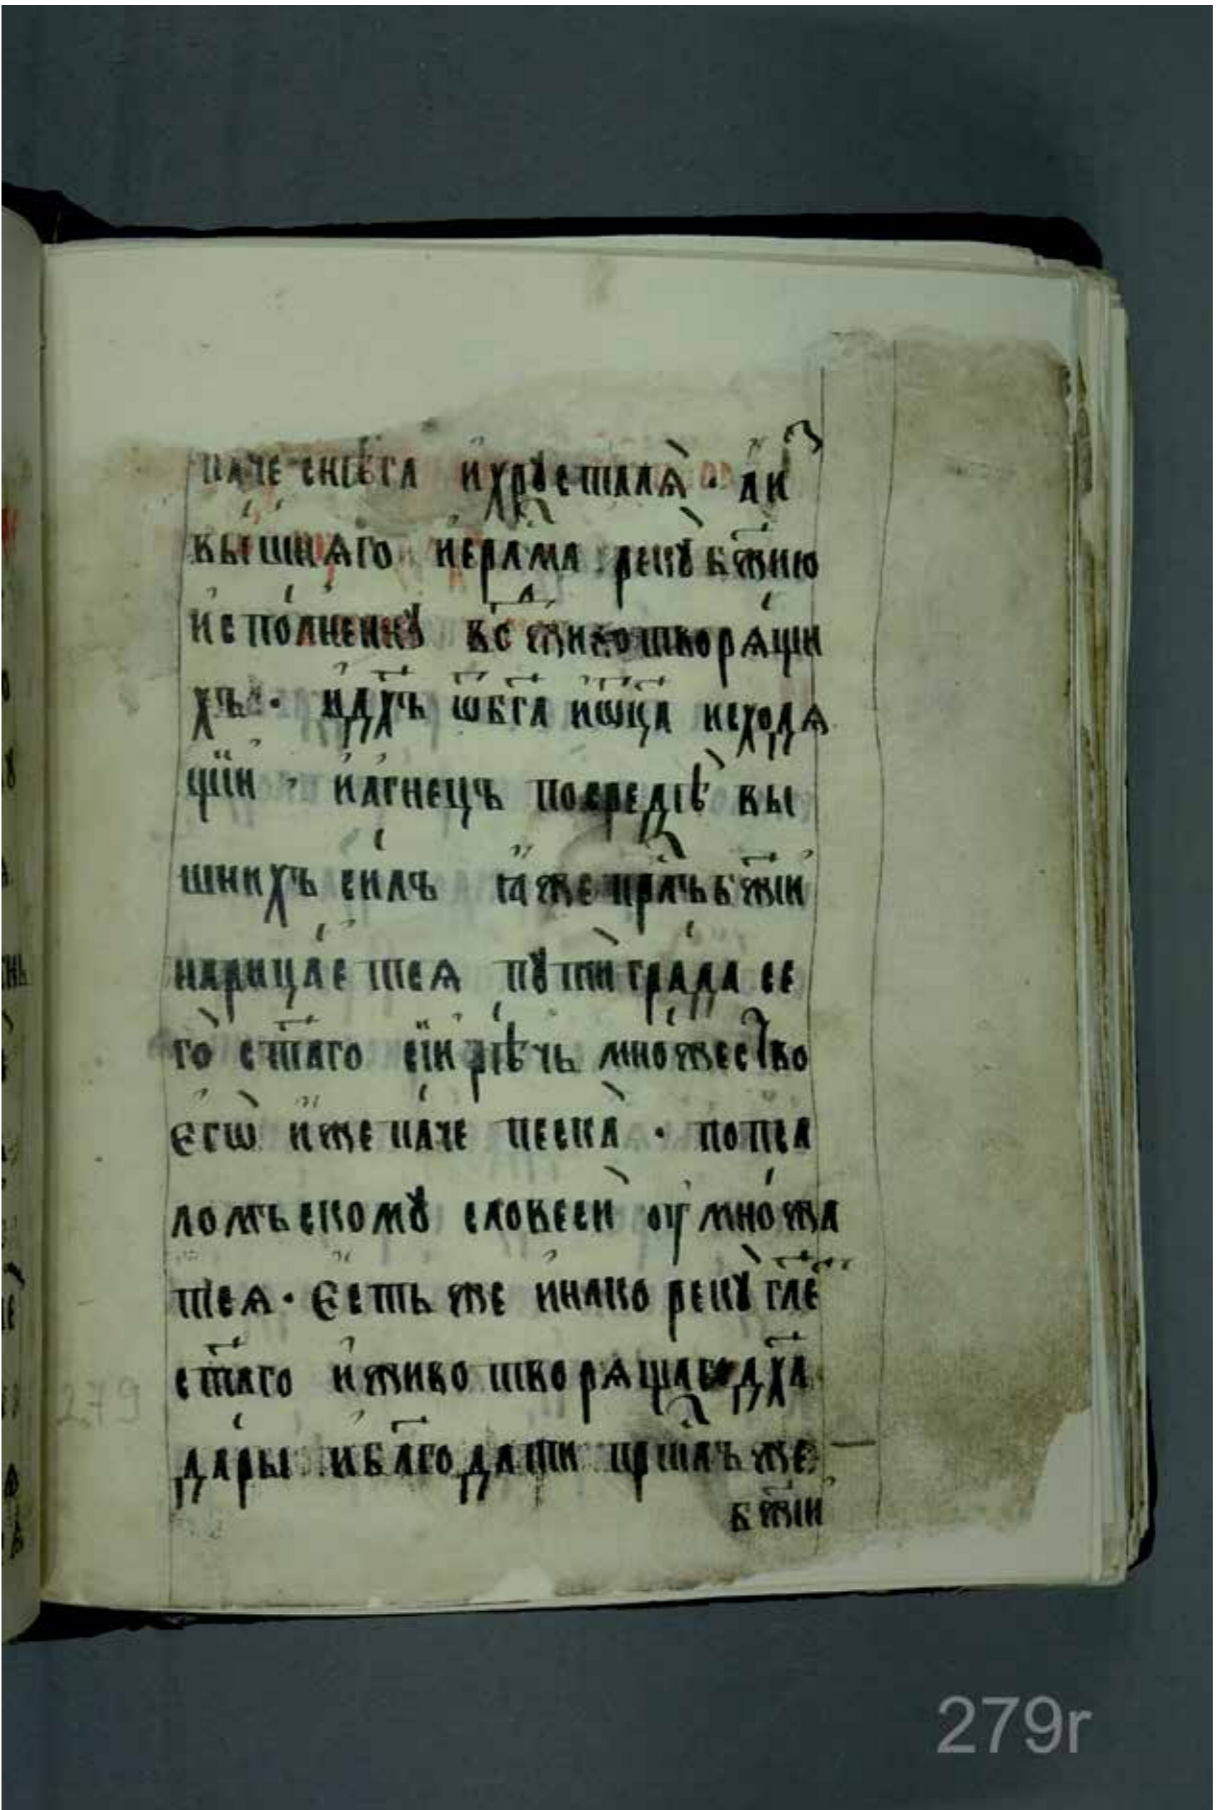 паче снѣга и҆хрꙋсталѧ̀ · а҆ки
вы́шнѧго и҆ерⷭ҇ли́ма рекꙋ̀ бж҃їю
и҆спо́лненкꙋ всѧ животворѧ́щи
хъ · и҆дх҃ъ ѿбг҃а и҆ѿц҃а исходѧ
щїи · и҆а́гнецъ посредѣ̀ вы
шнихъ си́лъ ꙗ҆́же прⷭ҇то́лъ бж҃їи
нарица́етсѧ пꙋтѝ гра́да се
го̀ ст҃аго сїи рѣ́чь мно́жество
є҆гѡ̀ и҆́же па́че песка̀ · попса
ломъскомꙋ словесѝ ѹмно́жа
тсѧ · Є҆сть же и҆нако рекꙋ̀ гл҃е
ст҃аго и҆животворѧщаго дх҃а
да́ры и҆бл҃годати прⷭ҇то́лъ же
бж҃їи
279
279r